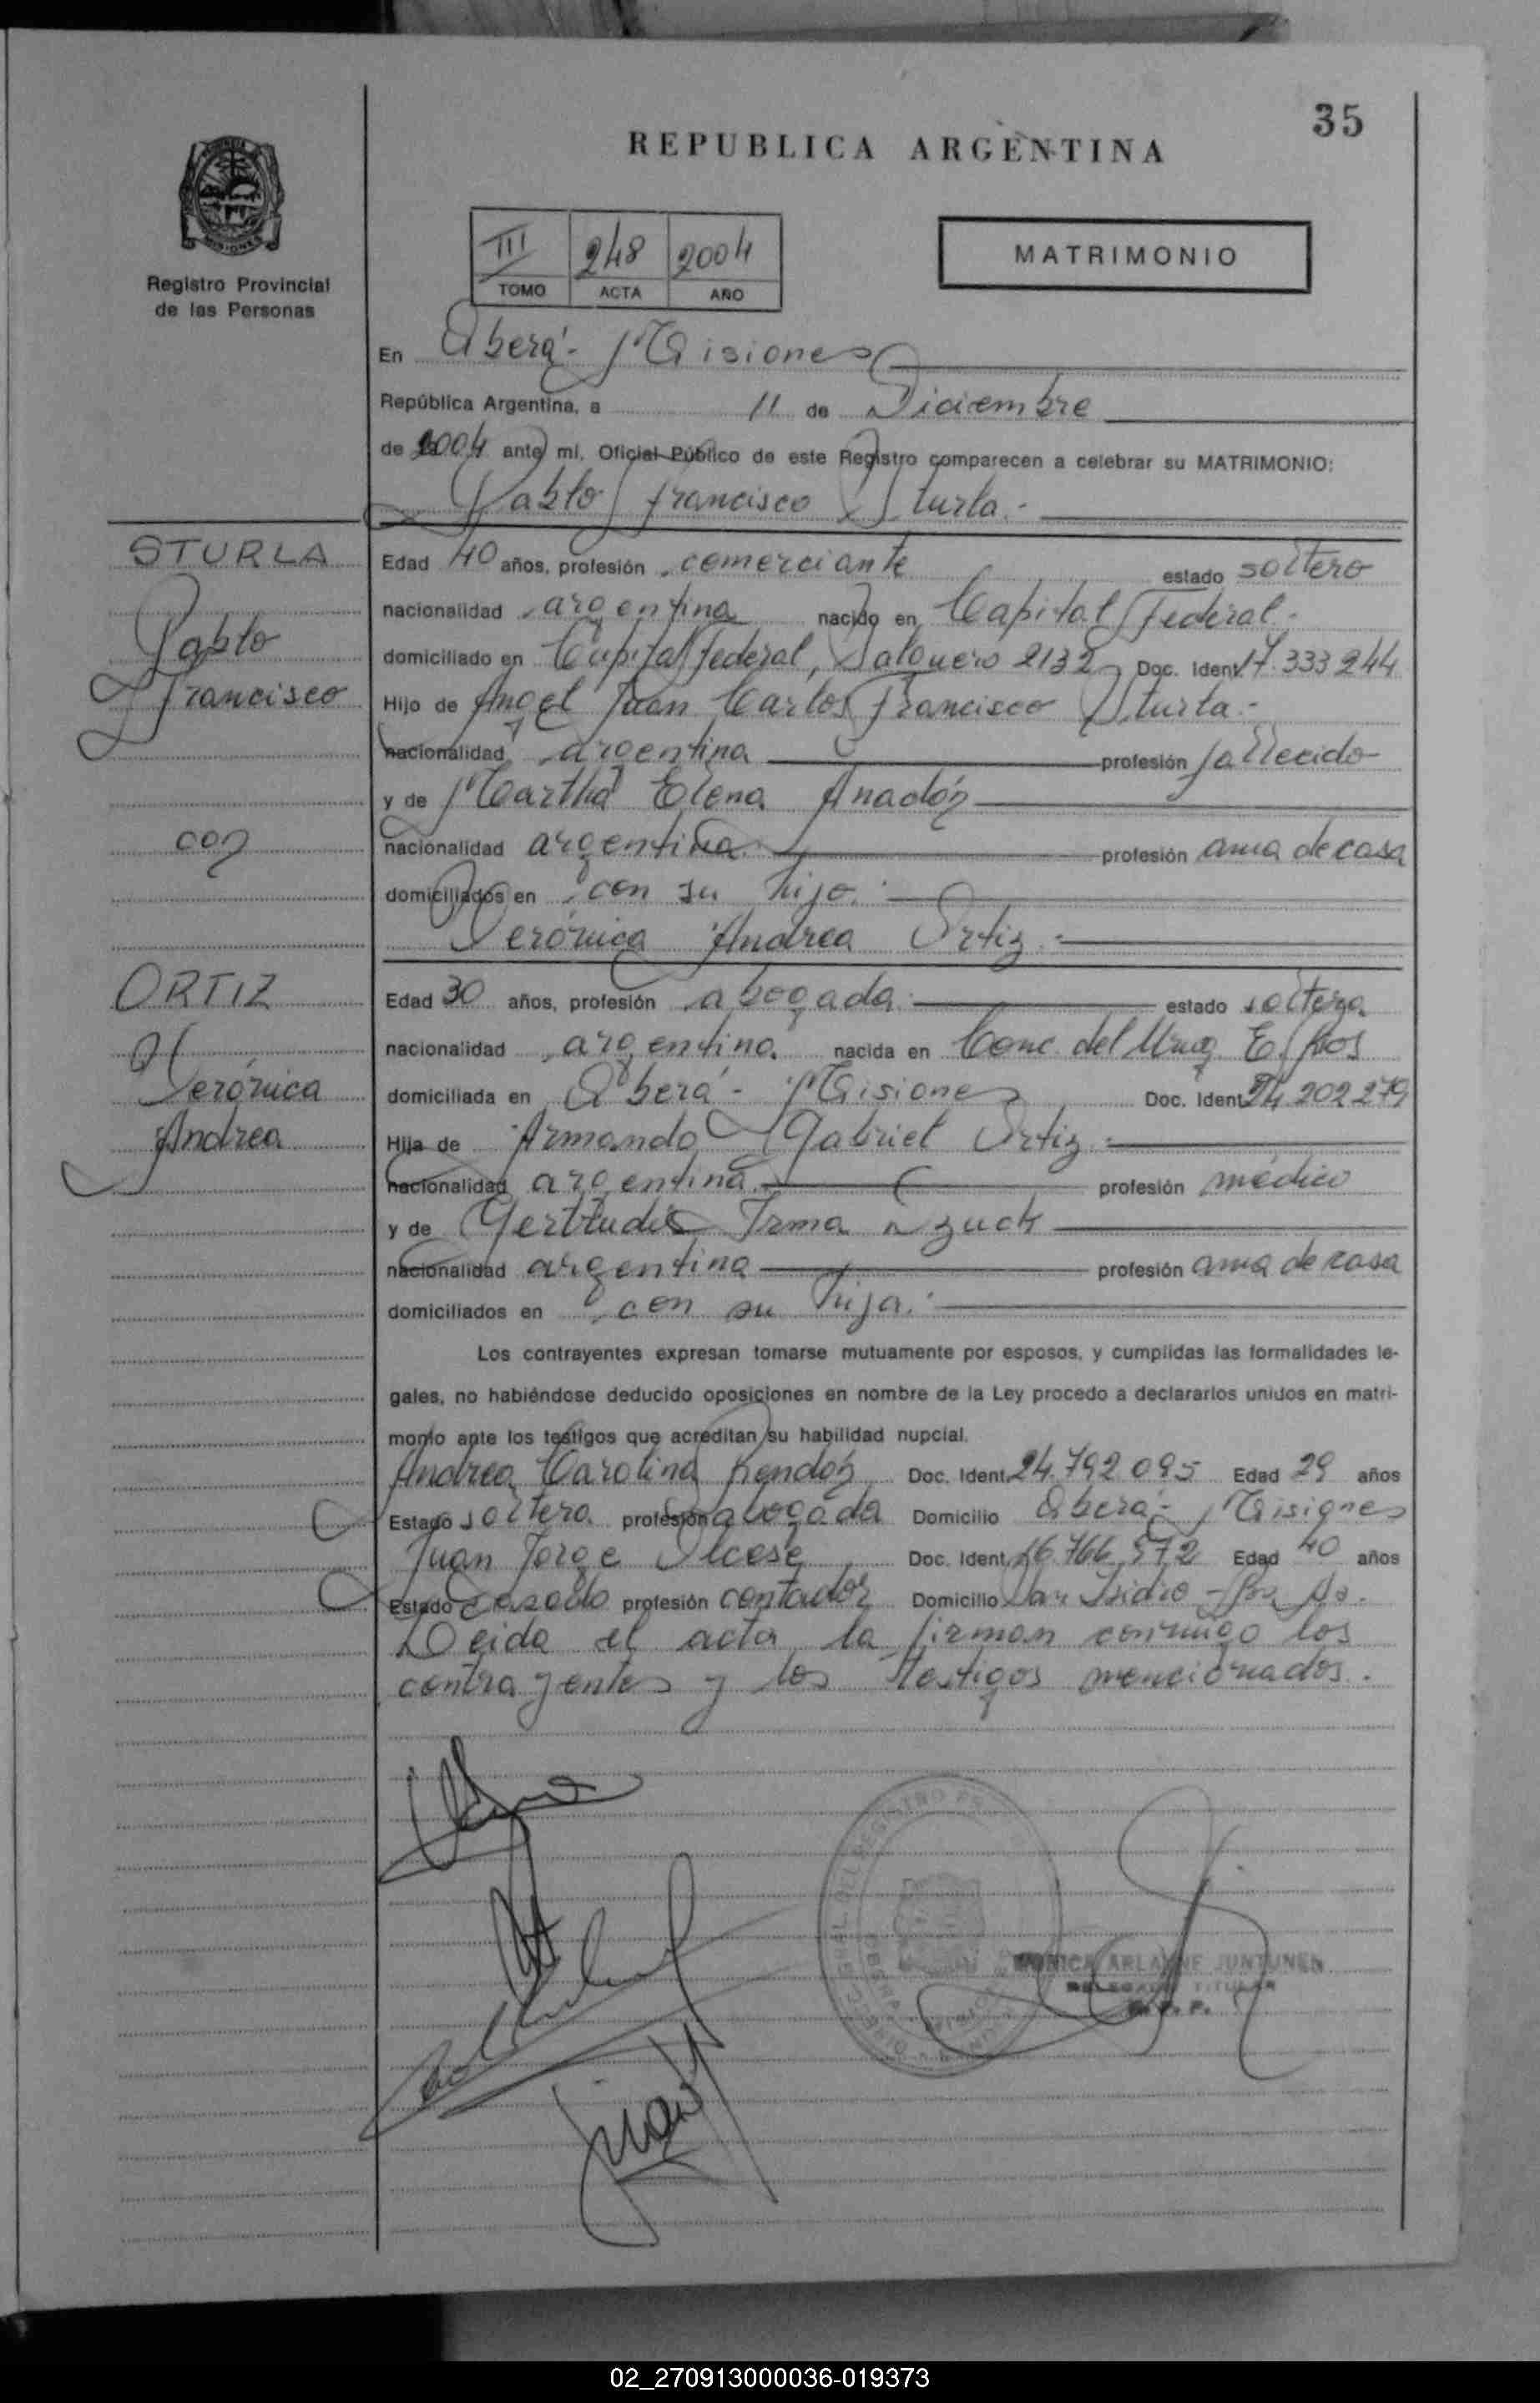 35
REPUBLICA ARGENTINA
MISIONES
Registro Provincial
de las Personas
III 248 2004
TOMO ACTA AÑO
MATRIMONIO
En Oberá - Misiones
República Argentina, a 11 de Diciembre
de 2004 ante mi, Oficial Público de este Registro comparecen a celebrar su MATRIMONIO:
Pablo Francisco Sturla.-
STURLA
Pablo
Francisco
con
ORTIZ
Verónica
Andrea
Edad 40 años, profesión comerciante estado soltero
nacionalidad argentina nacido en Capital Federal.-
domiciliado en Capital Federal, Salguero 2132 Doc. Ident. 17.333.244
Hijo de Angel Juan Carlos Francisco Sturla.-
nacionalidad argentina profesión fallecido
y de Martha Elena Anadón
nacionalidad argentina profesión ama de casa
domiciliados en con su hijo.
Verónica Andrea Ortiz.-
Edad 30 años, profesión abogada.- estado soltera
nacionalidad argentina nacida en Conc. del Urug. E. Ríos
domiciliada en Oberá - Misiones Doc. Ident. 24.202.279
Hija de Armando Gabriel Ortiz.-
nacionalidad argentina profesión médico
y de Gertrudis Irma
nacionalidad argentina profesión ama de casa
domiciliados en con su hija.-
Los contrayentes expresan tomarse mutuamente por esposos, y cumplidas las formalidades le-
gales, no habiéndose deducido oposiciones en nombre de la Ley procedo a declararlos unidos en matri-
monio ante los testigos que acreditan su habilidad nupcial.
Andrea Carolina Rendón Doc. Ident. 24.792.095 Edad 29 años
Estado soltera profesión abogada Domicilio Oberá - Misiones
Juan Jorge Doc. Ident. 16.766.572 Edad 40 años
Estado casado profesión contador Domicilio San Isidro - Bs. As.
Leida el acta la firman conmigo los
contrayentes y los testigos mencionados.
MONICA ARLAYNE JUNTUNEN
DELEGADA TITULAR
R. P. P.
02_270913000036-019373